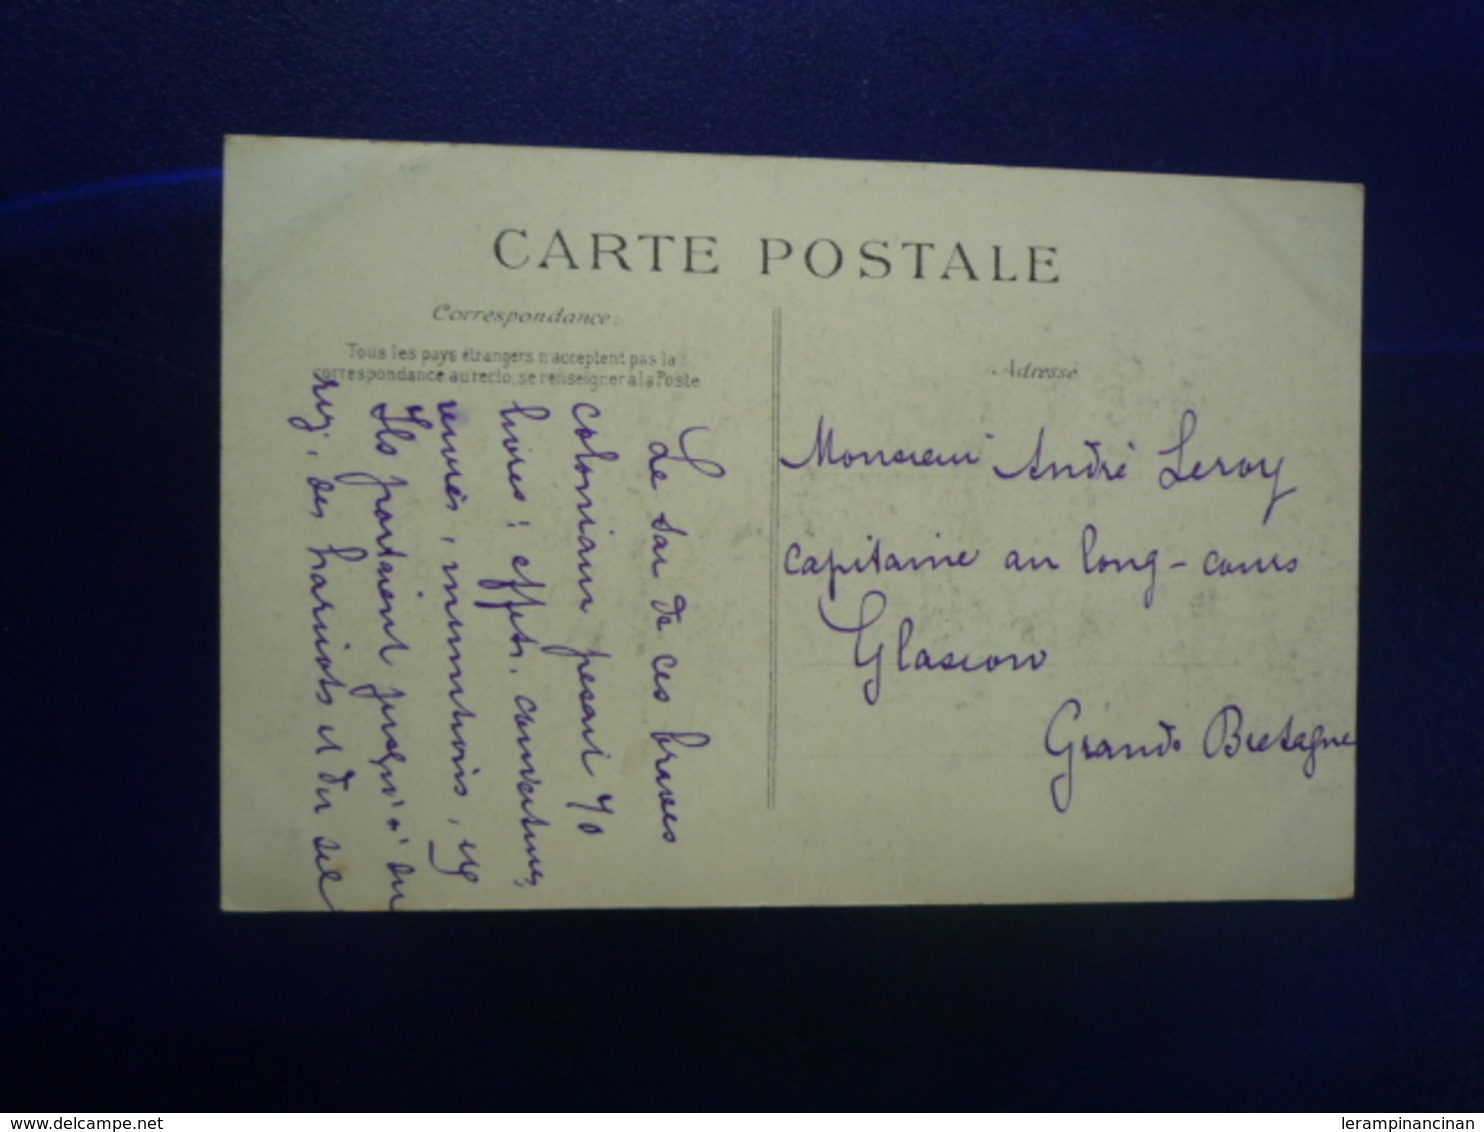 CARTE POSTALE
Correspondance:
Tous les pays étrangers n'acceptent pas la
correspondance au recto, se renseigner à la Poste
Le sac de ces braves
coloniaux pesait 40
livres : effets, couvertures,
vivres, munitions,
Ils portaient jusqu'à du
riz, des haricots et du sel
Adresse
Monsieur André Leroy
capitaine au long-cours
Glascow
Grande Bretagne
www.delcampe.net
lerampinancinan